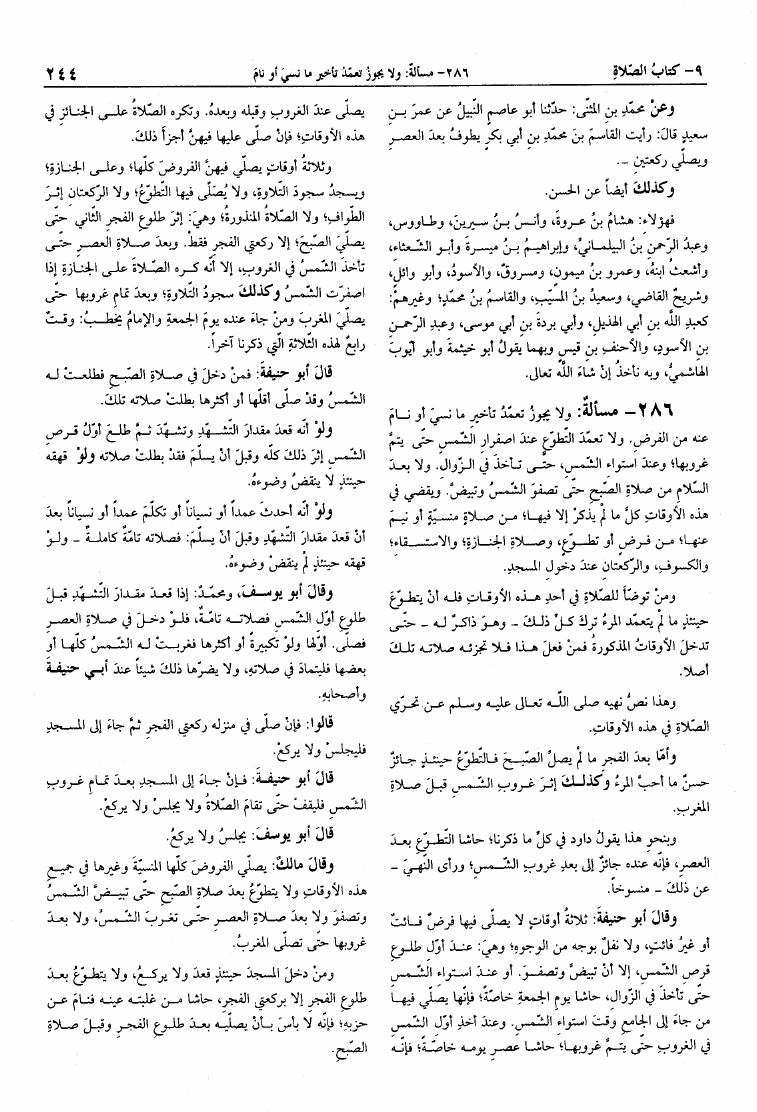 ٩- كتابُ الصَّلاةِ
٢٨٦- مسألةٌ: ولا يجوزُ تعمّدُ تأخيرِ ما نسيَ أو نامَ
٢٤٤
وعنْ محمّدِ بنِ المثنّى: حدّثنا أبو عاصمٍ النّبيلُ عن عمرَ بنِ
سعيدٍ قالَ: رأيت القاسمَ بنَ محمّدِ بنِ أبي بكرٍ يطوفُ بعدَ العصرِ
ويصلّي ركعتينِ -.
وكذلكَ أيضاً عن الحسنِ.
فهؤلاءِ: هشامُ بنُ عروةَ، وأنسُ بنُ سيرينَ، وطاووس،
وعبدُ الرّحمنِ بنُ البيلمانيِّ، وإبراهيمُ بنُ ميسرةَ وأبو الشّعثاءِ،
وأشعث ابنهُ، وعمرو بنُ ميمونٍ، ومسروقٌ، والأسودُ، وأبو وائلٍ،
وشريحٌ القاضي، وسعيدُ بنُ المسيّبِ، والقاسمُ بنُ محمّدٍ؛ وغيرهمْ:
كعبدِ اللَّه بنِ أبي الهذيلِ، وأبي بردةَ بنِ أبي موسى، وعبدِ الرّحمنِ
بنِ الأسودِ، والأحنفِ بنِ قيسٍ وبهما يقولُ أبو خيثمةَ وأبو أيّوبَ
الهاشميُّ، وبه نأخذُ إنْ شاءَ اللَّه تعالى.
٢٨٦- مسألةٌ: ولا يجوزُ تعمّدُ تأخيرِ ما نسيَ أو نـامَ
عنه من الفرضِ. ولا تعمّدُ التّطوّعِ عندَ اصفرارِ الشّمسِ حتى يتمَّ
غروبها؛ وعندَ استواءِ الشّمسِ، حتّـى تـأخذَ في الزّوالِ. ولا بعدَ
السّلامِ من صلاةِ الصّبحِ حتّى تصفوَ الشّمسُ وتبيضَّ. ويقضي في
هذه الأوقاتِ كلَّ ما لمْ يذكرْ إلا فيها؛ مـن صلاةٍ منسيّةٍ أو نيمَ
عنها؛ مـن فرضٍ أو تطـوّعٍ، وصلاةِ الجنـازةِ؛ والاستسـقاءِ؛
والكسوفِ، والرّكعتان عندَ دخولِ المسجدِ.
ومنْ توضّأَ للصّلاةِ في أحدِ هـذه الأوقـاتِ فلـه أنْ يتطـوّعَ
حينئذٍ ما لمْ يتعمّد المرءُ تركَ كـلِّ ذلـكَ - وهـوَ ذاكـرٌ لـه - حتّـى
تدخلَ الأوقاتُ المذكورةُ فمنْ فعلَ هـذا فـلا تجزئـه صلاتـه تلـكَ
أصلا.
وهذا نصُّ نهيِه صلى اللَّـه تعالى عليـه وسـلم عـن تحرّي
الصّلاةِ في هذه الأوقاتِ.
وأمّا بعدَ الفجرِ ما لمْ يصلِّ الصّبـحَ فـالتّطوّعُ حينئـذٍ جـائزٌ
حسنٌ ما أحبَّ المرءُ وكذلـكَ إثـرَ غروبِ الشّمسِ قبـلَ صـلاةِ
المغربِ.
وبنحوِ هذا يقولُ داود في كلِّ ما ذكرنا؛ حاشا التّطـوّعِ بعـدَ
العصرِ، فإنّه عنده جائزٌ إلى بعدِ غروبِ الشّـمسِ؛ ورأى النّهـيَ -
عن ذلكَ - منسوخاً.
وقالَ أبو حنيفةَ: ثلاثةُ أوقاتٍ لا يصلّى فيها فرضٌ فـائتٌ
أو غيرُ فائتٍ، ولا نفلٌ بوجهٍ من الوجوهِ؛ وهيَ: عنـدَ أوّلِ طلـوعِ
قرصِ الشّمسِ، إلا أنْ تبيضَّ وتصفـوَ. أو عنـدَ استـواءِ الشّمسِ
حتّى تأخذَ في الزّوالِ، حاشا يومَ الجمعةِ خاصّةً؛ فإنّها يصلّي فيهـا
من جاءَ إلى الجامعِ وقتَ استواءِ الشّمسِ. وعندَ أخذِ أوّلِ الشّمسِ
في الغروبِ حتّى يتمَّ غروبها؛ حاشـا عصرَ يومِـه خاصّـةً؛ فإنّـه
يصلّى عندَ الغروبِ وقبله وبعدهُ. وتكره الصّلاةُ علـى الجنـائزِ في
هذه الأوقاتِ؛ فإنْ صلّى عليها فيهنَّ أجزأَ ذلكَ.
وثلاثةُ أوقاتٍ يصلّي فيهنَّ الفروضَ كلّها؛ وعلـى الجنـازةِ؛
ويسجدُ سجودَ التّلاوةِ، ولا يُصلّى فيها التّطوّعُ؛ ولا الرّكعتان إثـرَ
الطّوافِ؛ ولا الصّلاةُ المنذورةُ؛ وهيَ: إثرَ طلوعِ الفجرِ الثّاني حتّى
يصلّيَ الصّبحَ؛ إلا ركعتي الفجرِ فقطْ. وبعدَ صـلاةِ العصـرِ حتّـى
تأخذَ الشّمسُ في الغروبِ، إلا أنّه كـره الصّـلاةَ علـى الجنازةِ إذا
اصفرّت الشّمسُ وكذلكَ سجودُ التّلاوةِ؛ وبعدَ تمامِ غروبها حتّى
يصلّيَ المغربَ ومنْ جاءَ عنده يومَ الجمعةِ والإمامُ يخطـبُ: وقـتٌ
رابعٌ لهذه الثّلاثةِ الّتي ذكرنا آخراً.
قالَ أبو حنيفةَ: فمنْ دخلَ في صـلاةِ الصّبـحِ فطلعـتْ لـه
الشّمسُ وقدْ صلّى أقلّها أو أكثرها بطلتْ صلاته تلكَ.
ولوْ أنّه قعدَ مقدارَ التّشـهّدِ وتشهّدَ ثـمَّ طلـعَ أوّلُ قـرصِ
الشّمسِ إثرَ ذلكَ كلّه وقبلَ أنْ يسلّمَ فقدْ بطلتْ صلاته ولوْ قهقه
حينئذٍ لا ينقضُ وضوءهُ.
ولوْ أنّه أحدثَ عمداً أو نسياناً أو تكلّمَ عمداً أو نسياناً بعدَ
أنْ قعدَ مقدارَ التّشهّدِ وقبلَ أنْ يسلّمَ: فصلاته تامّةٌ كاملـةٌ - ولـوْ
قهقه حينئذٍ لمْ ينتقضْ وضوءهُ.
وقالَ أبو يوسفَ، ومحمّدٌ: إذا قعدَ مقـدارَ التّشـهّدِ قبـلَ
طلوعِ أوّلِ الشّمسِ فصلاتـه تامّـةٌ، فلـوْ دخـلَ في صـلاةِ العصرِ
فصلّى. أوّلها ولوْ تكبيرةً أو أكثرها فغربـتْ لـه الشّمسُ كلّهـا أو
بعضها فليتمادَ في صلاتِه، ولا يضرّها ذلكَ شيئاً عندَ أبـي حنيفةَ
وأصحابهِ.
قالوا: فإنْ صلّى في منزله ركعتي الفجرِ ثمَّ جاءَ إلى المسـجدِ
فليجلسْ ولا يركعْ.
قالَ أبو حنيفةَ: فـإنْ جـاءَ إلـى المسـجدِ بعـدَ تمـامِ غـروبِ
الشّمسِ فليقفْ حتّى تقامَ الصّلاةُ ولا يجلسْ ولا يركعْ.
قالَ أبو يوسفَ: يجلسُ ولا يركعُ.
وقالَ مالكٌ: يصلّي الفروضَ كلّها المنسيّةَ وغيرها في جميـعِ
هذه الأوقاتِ ولا يتطوّعُ بعدَ صلاةِ الصّبحِ حتّى تبيـضَّ الشّمسُ
وتصفوَ ولا بعدَ صـلاةِ العصـرِ حتّـى تغـربَ الشّمسُ، ولا بعـدَ
غروبها حتّى تصلّى المغربُ.
ومنْ دخلَ المسجدَ حينئذٍ قعدَ ولا يركـعُ، ولا يتطـوّعُ بعـدَ
طلوعِ الفجرِ إلا بركعتي الفجرِ، حاشا مـن غلبتـه عينـه فنـامَ عـن
حزبهِ؛ فإنّه لا بأسَ بـأنْ يصلّيـه بعـدَ طلـوعِ الفجـرِ وقبـلَ صـلاةِ
الصّبحِ.